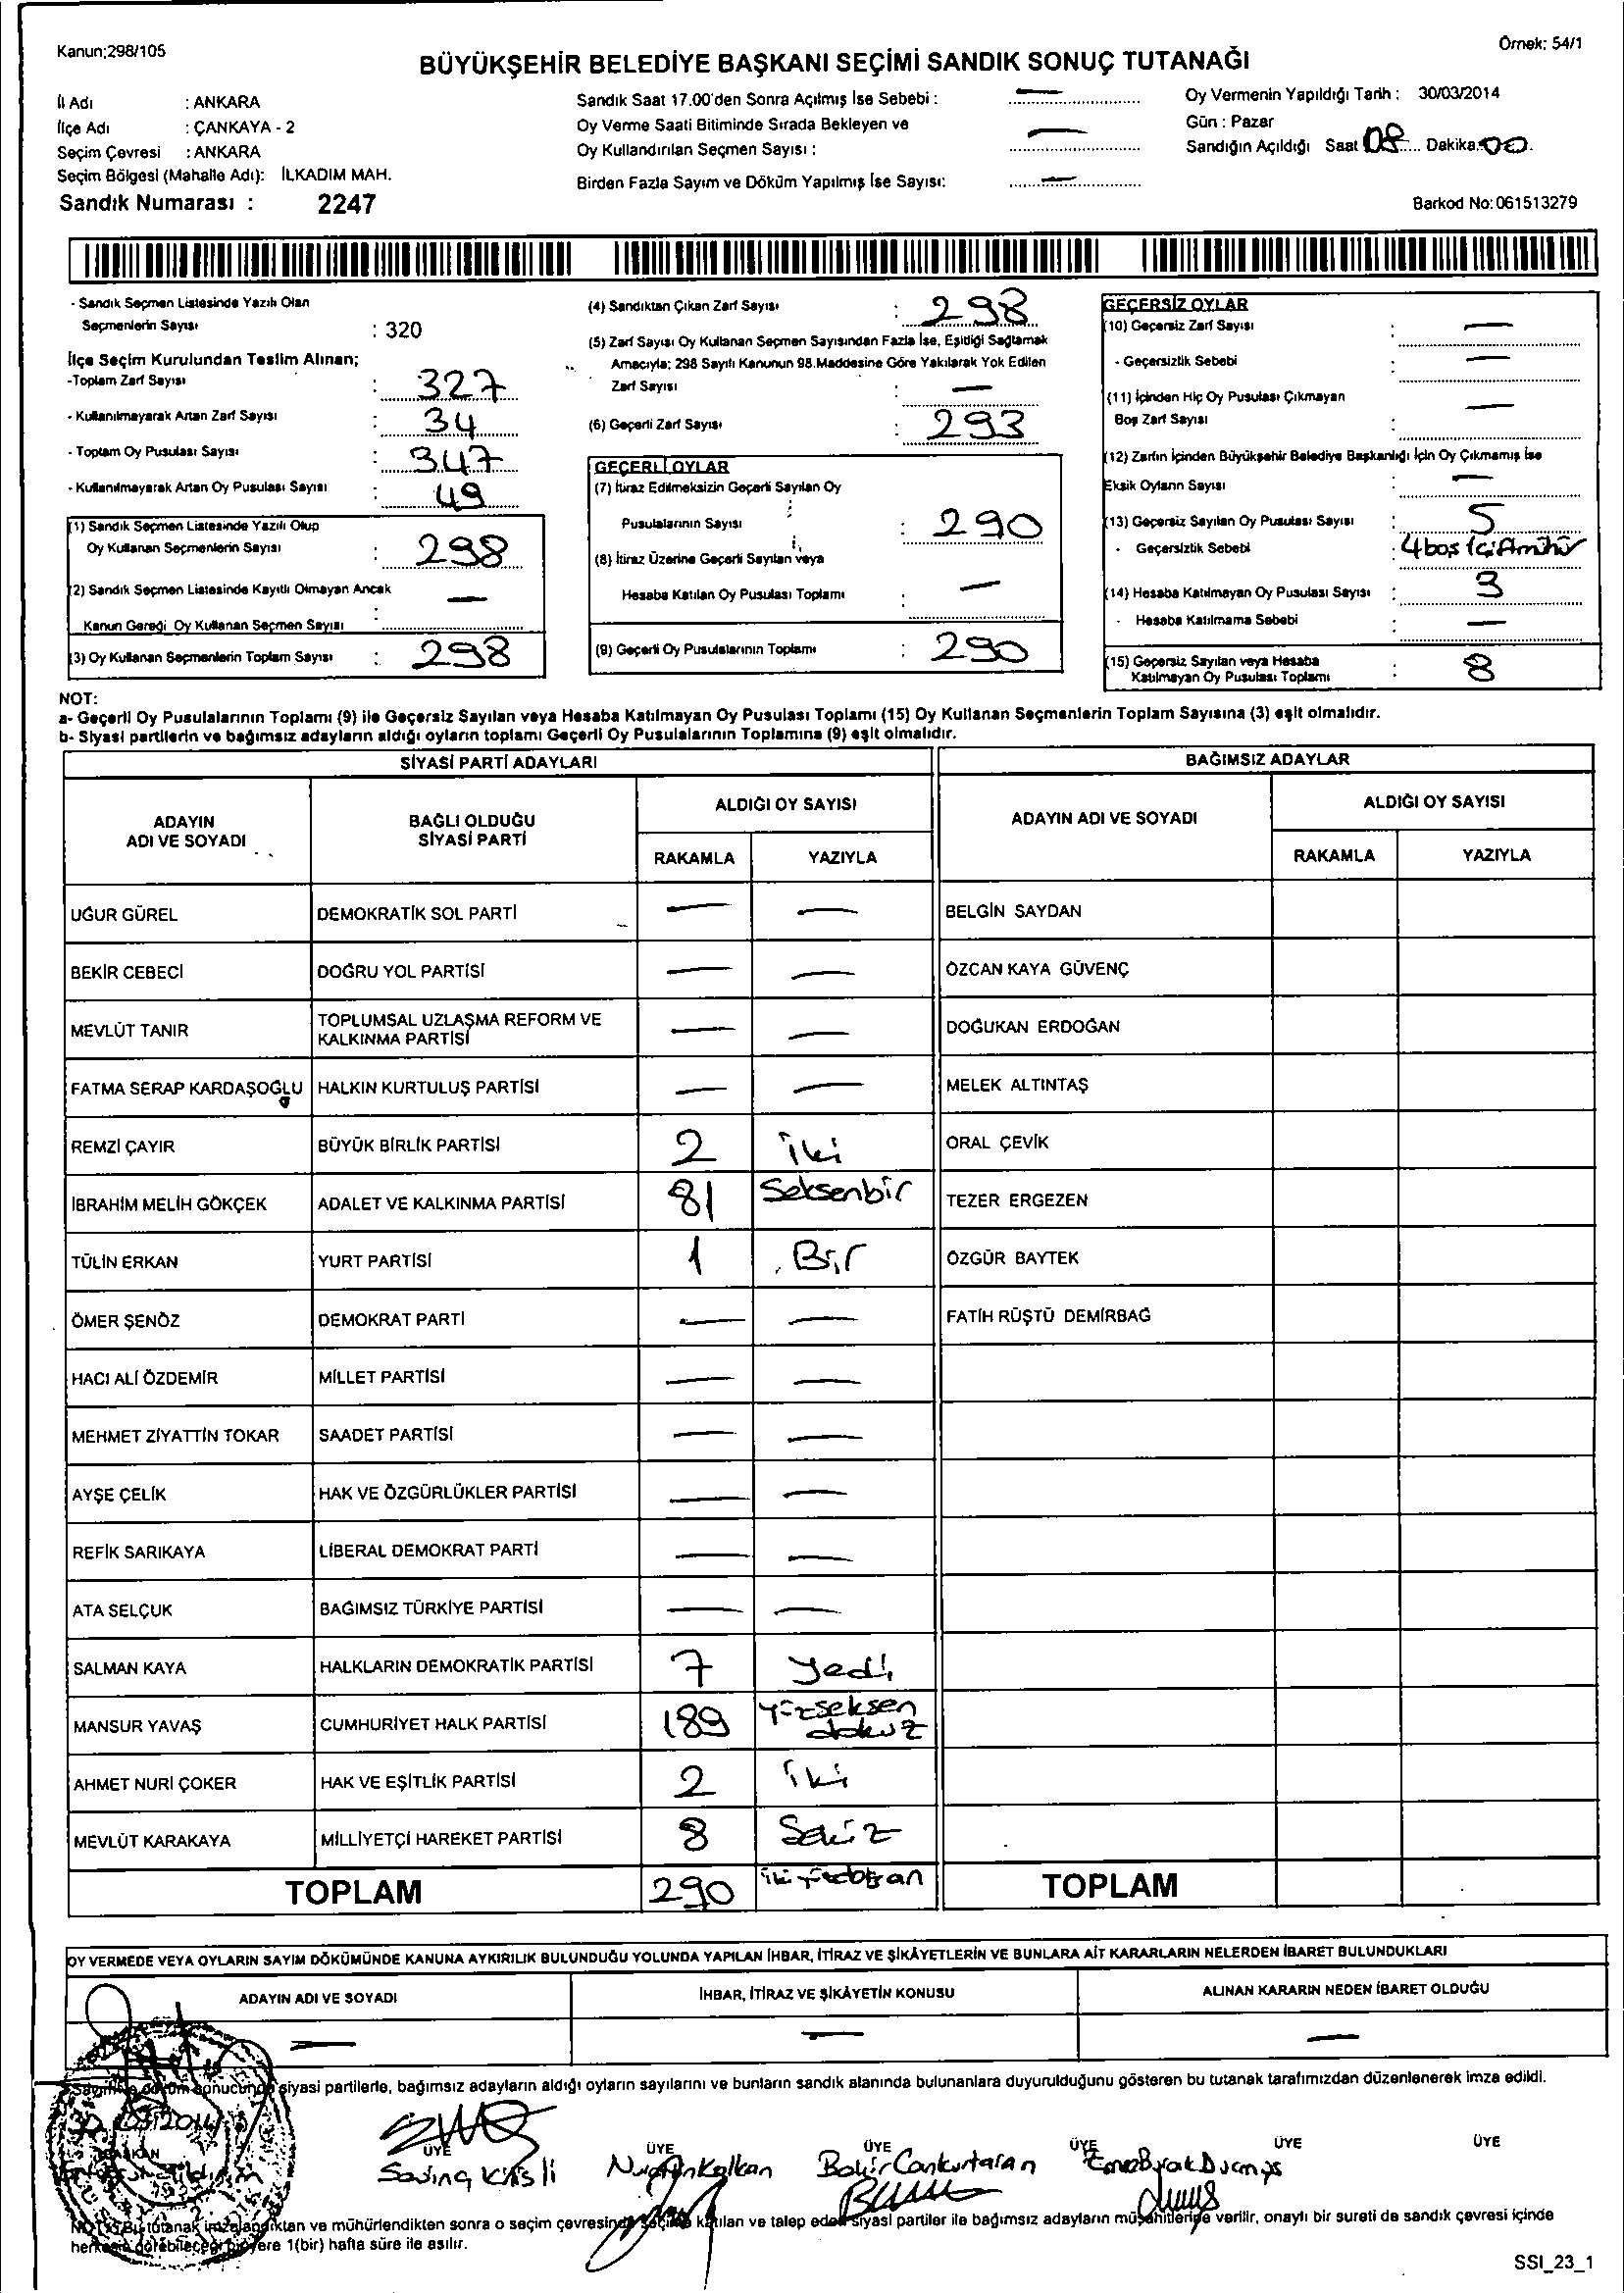 Kanun;298/105
Örnek: 54/1
BÜYÜKŞEHİR BELEDİYE BAŞKANI SEÇİMİ SANDIK SONUÇ TUTANAĞI
İl Adı : ANKARA
İlçe Adı : ÇANKAYA - 2
Seçim Çevresi : ANKARA
Seçim Bölgesi (Mahalle Adı): İLKADIM MAH.
Sandık Numarası : 2247
Sandık Saat 17.00'den Sonra Açılmış İse Sebebi : —
Oy Verme Saati Bitiminde Sırada Bekleyen ve
Oy Kullandırılan Seçmen Sayısı : —
Birden Fazla Sayım ve Döküm Yapılmış İse Sayısı: —
Oy Vermenin Yapıldığı Tarih : 30/03/2014
Gün : Pazar
Sandığın Açıldığı Saat 08 Dakika: 00
Barkod No:061513279
- Sandık Seçmen Listesinde Yazılı Olan
Seçmenlerin Sayısı : 320
İlçe Seçim Kurulundan Teslim Alınan;
-Toplam Zarf Sayısı : 327
- Kullanılmayarak Artan Zarf Sayısı : 34
- Toplam Oy Pusulası Sayısı : 347
- Kullanılmayarak Artan Oy Pusulası Sayısı : 49
(1) Sandık Seçmen Listesinde Yazılı Olup
Oy Kullanan Seçmenlerin Sayısı : 298
(2) Sandık Seçmen Listesinde Kayıtlı Olmayan Ancak
Kanun Gereği Oy Kullanan Seçmen Sayısı : —
(3) Oy Kullanan Seçmenlerin Toplam Sayısı : 298
(4) Sandıktan Çıkan Zarf Sayısı : 298
(5) Zarf Sayısı Oy Kullanan Seçmen Sayısından Fazla İse, Eşitliği Sağlamak
Amacıyla; 298 Sayılı Kanunun 98.Maddesine Göre Yakılarak Yok Edilen
Zarf Sayısı : —
(6) Geçerli Zarf Sayısı : 293
GEÇERLİ OYLAR
(7) İtiraz Edilmeksizin Geçerli Sayılan Oy
Pusulalarının Sayısı : 290
(8) İtiraz Üzerine Geçerli Sayılan veya
Hesaba Katılan Oy Pusulası Toplamı : —
(9) Geçerli Oy Pusulalarının Toplamı : 290
GEÇERSİZ OYLAR
(10) Geçersiz Zarf Sayısı : —
- Geçersizlik Sebebi : —
(11) İçinden Hiç Oy Pusulası Çıkmayan
Boş Zarf Sayısı : —
(12) Zarfın İçinden Büyükşehir Belediye Başkanlığı İçin Oy Çıkmamış İse
Eksik Oyların Sayısı : —
(13) Geçersiz Sayılan Oy Pusulası Sayısı : 5
- Geçersizlik Sebebi : 4 boş
(14) Hesaba Katılmayan Oy Pusulası Sayısı : 3
- Hesaba Katılmama Sebebi : —
(15) Geçersiz Sayılan veya Hesaba
Katılmayan Oy Pusulası Toplamı : 8
NOT:
a- Geçerli Oy Pusulalarının Toplamı (9) ile Geçersiz Sayılan veya Hesaba Katılmayan Oy Pusulası Toplamı (15) Oy Kullanan Seçmenlerin Toplam Sayısına (3) eşit olmalıdır.
b- Siyasi partilerin ve bağımsız adayların aldığı oyların toplamı Geçerli Oy Pusulalarının Toplamına (9) eşit olmalıdır.
SİYASİ PARTİ ADAYLARI
ADAYIN ADI VE SOYADI
BAĞLI OLDUĞU SİYASİ PARTİ
ALDIĞI OY SAYISI
RAKAMLA YAZIYLA
UĞUR GÜREL DEMOKRATİK SOL PARTİ — —
BEKİR CEBECİ DOĞRU YOL PARTİSİ — —
MEVLÜT TANIR TOPLUMSAL UZLAŞMA REFORM VE KALKINMA PARTİSİ — —
FATMA SERAP KARDAŞOĞLU HALKIN KURTULUŞ PARTİSİ — —
REMZİ ÇAYIR BÜYÜK BİRLİK PARTİSİ 2 iki
İBRAHİM MELİH GÖKÇEK ADALET VE KALKINMA PARTİSİ 81 Seksenbir
TÜLİN ERKAN YURT PARTİSİ 1 Bir
ÖMER ŞENÖZ DEMOKRAT PARTİ — —
HACI ALİ ÖZDEMİR MİLLET PARTİSİ — —
MEHMET ZİYATTİN TOKAR SAADET PARTİSİ — —
AYŞE ÇELİK HAK VE ÖZGÜRLÜKLER PARTİSİ — —
REFİK SARIKAYA LİBERAL DEMOKRAT PARTİ — —
ATA SELÇUK BAĞIMSIZ TÜRKİYE PARTİSİ — —
SALMAN KAYA HALKLARIN DEMOKRATİK PARTİSİ 7 Yedi
MANSUR YAVAŞ CUMHURİYET HALK PARTİSİ 189 Yüzseksen dokuz
AHMET NURİ ÇOKER HAK VE EŞİTLİK PARTİSİ 2 iki
MEVLÜT KARAKAYA MİLLİYETÇİ HAREKET PARTİSİ 8 Sekiz
TOPLAM 290 ikiyüzdoksan
BAĞIMSIZ ADAYLAR
ADAYIN ADI VE SOYADI
ALDIĞI OY SAYISI
RAKAMLA YAZIYLA
BELGİN SAYDAN
ÖZCAN KAYA GÜVENÇ
DOĞUKAN ERDOĞAN
MELEK ALTINTAŞ
ORAL ÇEVİK
TEZER ERGEZEN
ÖZGÜR BAYTEK
FATİH RÜŞTÜ DEMİRBAĞ
TOPLAM
OY VERMEDE VEYA OYLARIN SAYIM DÖKÜMÜNDE KANUNA AYKIRILIK BULUNDUĞU YOLUNDA YAPILAN İHBAR, İTİRAZ VE ŞİKÂYETLERİN VE BUNLARA AİT KARARLARIN NELERDEN İBARET BULUNDUKLARI
ADAYIN ADI VE SOYADI İHBAR, İTİRAZ VE ŞİKÂYETİN KONUSU ALINAN KARARIN NEDEN İBARET OLDUĞU
— — —
sonucunda siyasi partilerle, bağımsız adayların aldığı oyların sayılarını ve bunların sandık alanında bulunanlara duyurulduğunu gösteren bu tutanak tarafımızdan düzenlenerek imza edildi.
ÜYE ÜYE ÜYE ÜYE ÜYE ÜYE
Bekir Cankurtaran
Bu tutanak imzalandıktan ve mühürlendikten sonra o seçim çevresinde seçime katılan ve talep eden siyasi partiler ile bağımsız adayların müşahitlerine verilir, onaylı bir sureti de sandık çevresi içinde
herkesin görebileceği bir yere 1(bir) hafta süre ile asılır.
SSI_23_1